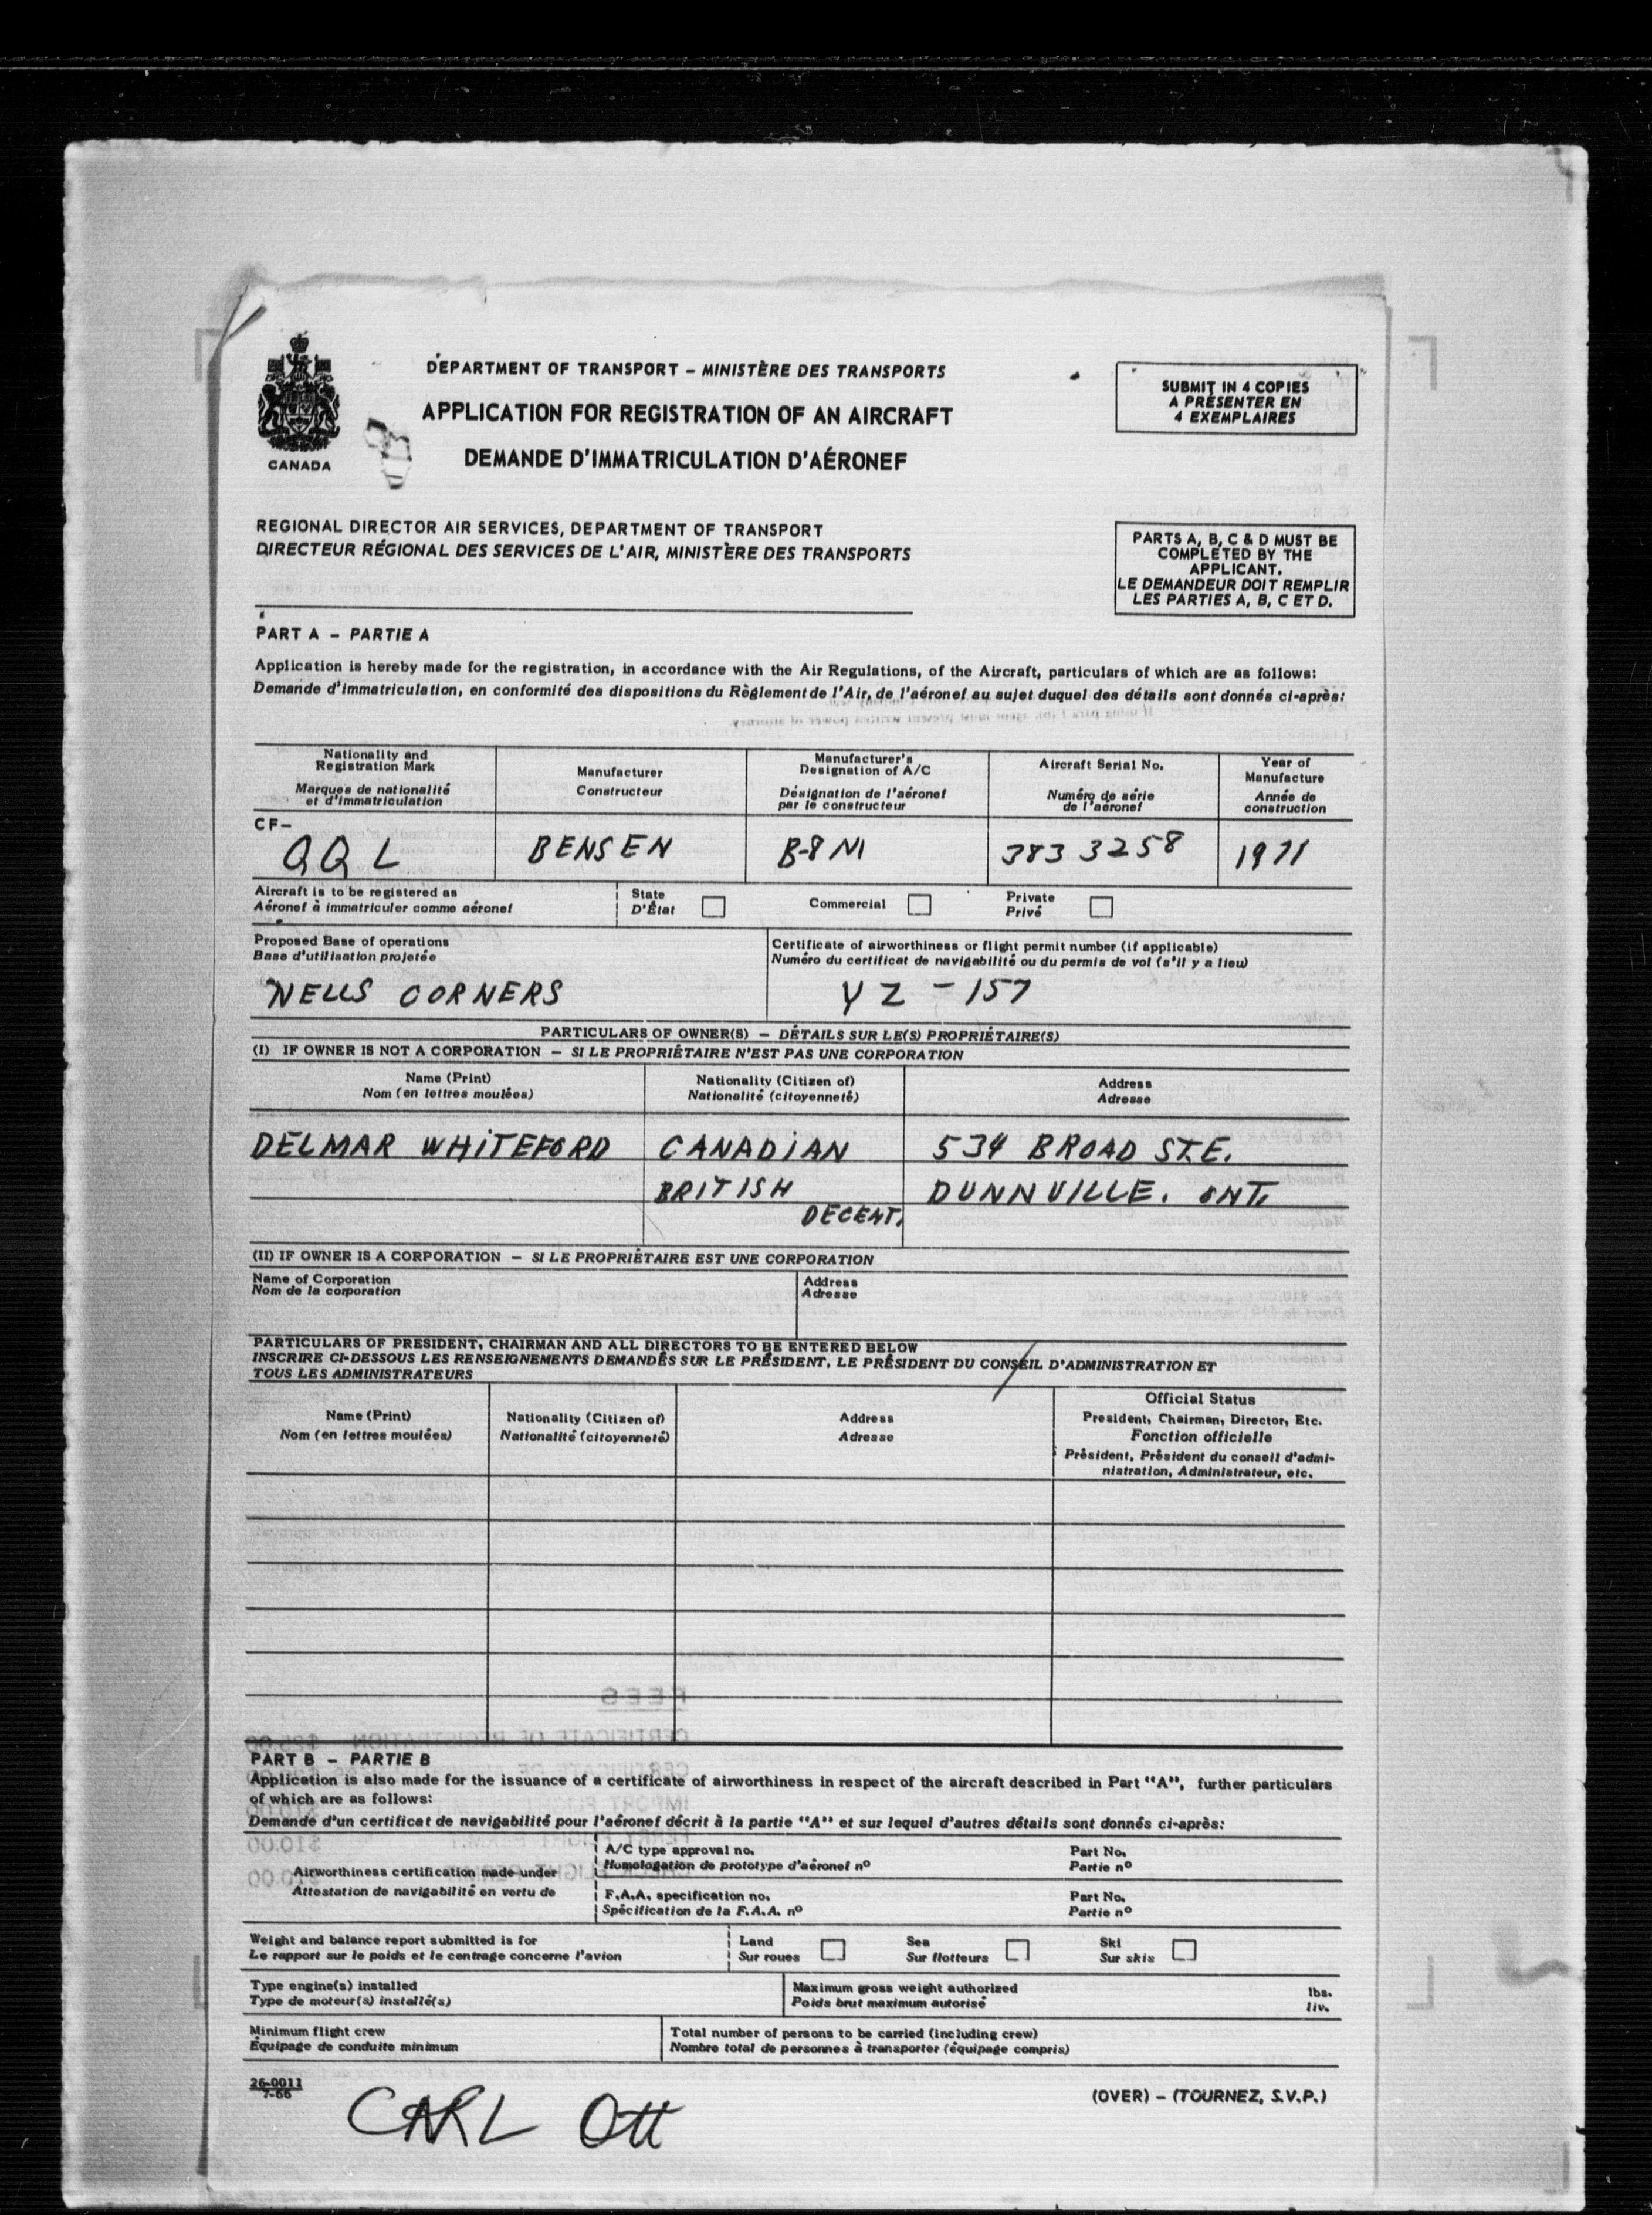 CANADA
DEPARTMENT OF TRANSPORT – MINISTÈRE DES TRANSPORTS
APPLICATION FOR REGISTRATION OF AN AIRCRAFT
DEMANDE D'IMMATRICULATION D'AÉRONEF
SUBMIT IN 4 COPIES
A PRÉSENTER EN
4 EXEMPLAIRES
REGIONAL DIRECTOR AIR SERVICES, DEPARTMENT OF TRANSPORT
DIRECTEUR RÉGIONAL DES SERVICES DE L'AIR, MINISTÈRE DES TRANSPORTS
PARTS A, B, C & D MUST BE
COMPLETED BY THE
APPLICANT.
LE DEMANDEUR DOIT REMPLIR
LES PARTIES A, B, C ET D.
PART A – PARTIE A
Application is hereby made for the registration, in accordance with the Air Regulations, of the Aircraft, particulars of which are as follows:
Demande d'immatriculation, en conformité des dispositions du Règlement de l'Air, de l'aéronef au sujet duquel des détails sont donnés ci-après:
Nationality and
Registration Mark
Marques de nationalité
et d'immatriculation
Manufacturer
Constructeur
Manufacturer's
Designation of A/C
Désignation de l'aéronef
par le constructeur
Aircraft Serial No.
Numéro de série
de l'aéronef
Year of
Manufacture
Année de
construction
CF–
QQL BENSEN B-8M 383 3258 1971
Aircraft is to be registered as
Aéronef à immatriculer comme aéronef
State
D'État
Commercial
Private
Privé
Proposed Base of operations
Base d'utilisation projetée
NELLS CORNERS
Certificate of airworthiness or flight permit number (if applicable)
Numéro du certificat de navigabilité ou du permis de vol (s'il y a lieu)
YZ – 157
PARTICULARS OF OWNER(S) – DÉTAILS SUR LE(S) PROPRIÉTAIRE(S)
(I) IF OWNER IS NOT A CORPORATION – SI LE PROPRIÉTAIRE N'EST PAS UNE CORPORATION
Name (Print)
Nom (en lettres moulées)
Nationality (Citizen of)
Nationalité (citoyenneté)
Address
Adresse
DELMAR WHITEFORD CANADIAN 534 BROAD ST.E.
BRITISH DUNNVILLE. ONT.
DECENT.
(II) IF OWNER IS A CORPORATION – SI LE PROPRIÉTAIRE EST UNE CORPORATION
Name of Corporation
Nom de la corporation
Address
Adresse
PARTICULARS OF PRESIDENT, CHAIRMAN AND ALL DIRECTORS TO BE ENTERED BELOW
INSCRIRE CI-DESSOUS LES RENSEIGNEMENTS DEMANDÉS SUR LE PRÉSIDENT, LE PRÉSIDENT DU CONSEIL D'ADMINISTRATION ET
TOUS LES ADMINISTRATEURS
Name (Print)
Nom (en lettres moulées)
Nationality (Citizen of)
Nationalité (citoyenneté)
Address
Adresse
Official Status
President, Chairman, Director, Etc.
Fonction officielle
Président, Président du conseil d'admi-
nistration, Administrateur, etc.
PART B – PARTIE B
Application is also made for the issuance of a certificate of airworthiness in respect of the aircraft described in Part "A", further particulars
of which are as follows:
Demande d'un certificat de navigabilité pour l'aéronef décrit à la partie "A" et sur lequel d'autres détails sont donnés ci-après:
Airworthiness certification made under
Attestation de navigabilité en vertu de
A/C type approval no.
Homologation de prototype d'aéronef nº
Part No.
Partie nº
F.A.A. specification no.
Spécification de la F.A.A. nº
Part No.
Partie nº
Weight and balance report submitted is for
Le rapport sur le poids et le centrage concerne l'avion
Land
Sur roues
Sea
Sur flotteurs
Ski
Sur skis
Type engine(s) installed
Type de moteur(s) installé(s)
Maximum gross weight authorized
Poids brut maximum autorisé
lbs.
liv.
Minimum flight crew
Équipage de conduite minimum
Total number of persons to be carried (including crew)
Nombre total de personnes à transporter (équipage compris)
26-0011
7-66
(OVER) – (TOURNEZ, S.V.P.)
CARL Ott